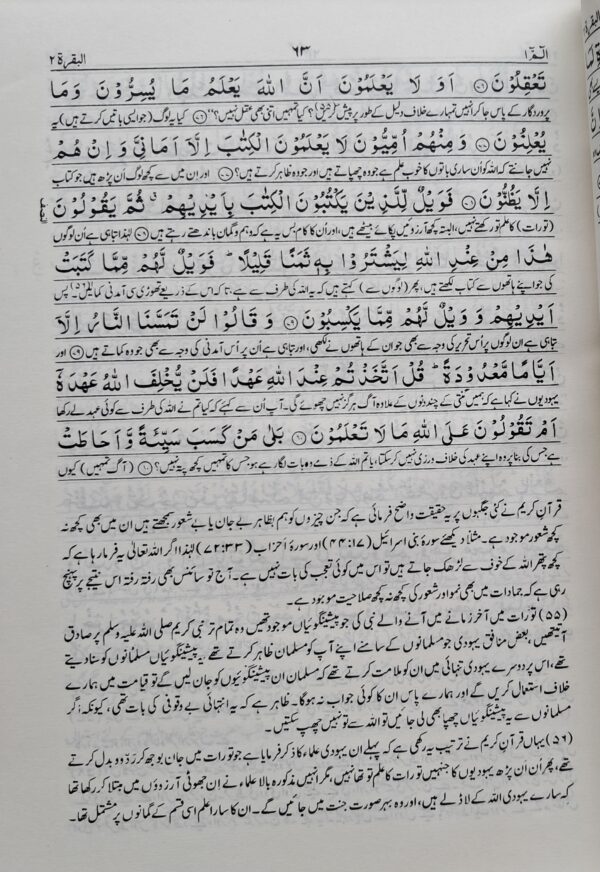 الٓمّٓ ١ ٦٣ البقرة ٢
تَعْقِلُوْنَ ۝ اَوَ لَا يَعْلَمُوْنَ اَنَّ اللّٰهَ يَعْلَمُ مَا يُسِرُّوْنَ وَمَا
پروردگار کے پاس جا کر انہیں تمہارے خلاف دلیل کے طور پر پیش کریں؟ کیا تمہیں اتنی بھی عقل نہیں؟" کیا یہ لوگ (جو ایسی باتیں کرتے ہیں) یہ
يُعْلِنُوْنَ ۝ وَمِنْهُمْ اُمِّيُّوْنَ لَا يَعْلَمُوْنَ الْكِتٰبَ اِلَّآ اَمَانِيَّ وَاِنْ هُمْ
نہیں جانتے کہ اللہ کو اُن ساری باتوں کا خوب علم ہے جو وہ چھپاتے ہیں اور جو وہ ظاہر کرتے ہیں؟ اور اِن میں سے کچھ لوگ اَن پڑھ ہیں جو کتاب
اِلَّا يَظُنُّوْنَ ۝ فَوَيْلٌ لِّلَّذِيْنَ يَكْتُبُوْنَ الْكِتٰبَ بِاَيْدِيْهِمْ ثُمَّ يَقُوْلُوْنَ
(تورات) کا علم تو رکھتے نہیں، البتہ کچھ آرزوئیں پکائے بیٹھے ہیں، اور اُن کا کام بس یہ ہے کہ وہم و گمان باندھتے رہتے ہیں لہٰذا تباہی ہے اُن لوگوں
هٰذَا مِنْ عِنْدِ اللّٰهِ لِيَشْتَرُوْا بِهٖ ثَمَنًا قَلِيْلًا ؕ فَوَيْلٌ لَّهُمْ مِّمَّا كَتَبَتْ
کی جو اپنے ہاتھوں سے کتاب لکھتے ہیں، پھر (لوگوں سے) کہتے ہیں کہ یہ اللہ کی طرف سے ہے، تاکہ اس کے ذریعے تھوڑی سی آمدنی کما لیں۔ پس
اَيْدِيْهِمْ وَوَيْلٌ لَّهُمْ مِّمَّا يَكْسِبُوْنَ ۝ وَقَالُوْا لَنْ تَمَسَّنَا النَّارُ اِلَّآ
تباہی ہے ان لوگوں پر اُس تحریر کی وجہ سے بھی جو ان کے ہاتھوں نے لکھی، اور تباہی ہے اُن پر اُس آمدنی کی وجہ سے بھی جو وہ کماتے ہیں اور
اَيَّامًا مَّعْدُوْدَةً ؕ قُلْ اَتَّخَذْتُمْ عِنْدَ اللّٰهِ عَهْدًا فَلَنْ يُّخْلِفَ اللّٰهُ عَهْدَهٗٓ
یہودیوں نے کہا ہے کہ ہمیں گنتی کے چند دنوں کے علاوہ آگ ہرگز نہیں چھوئے گی۔ آپ اُن سے کہئے کہ کیا تم نے اللہ کی طرف سے کوئی عہد لے رکھا
اَمْ تَقُوْلُوْنَ عَلَى اللّٰهِ مَا لَا تَعْلَمُوْنَ ۝ بَلٰى مَنْ كَسَبَ سَيِّئَةً وَّاَحَاطَتْ
ہے جس کی بنا پر وہ اپنے عہد کی خلاف ورزی نہیں کر سکتا، یا تم اللہ کے ذمے وہ بات لگا رہے ہو جس کا تمہیں کچھ پتہ نہیں؟ (آگ تمہیں) کیوں
قرآن کریم نے کئی جگہوں پر یہ حقیقت واضح فرمائی ہے کہ جن چیزوں کو ہم بظاہر بے جان یا بے شعور سمجھتے ہیں ان میں بھی کچھ نہ
کچھ شعور موجود ہے۔ مثلاً دیکھئے سورۂ بنی اسرائیل (۴۴:۱۷) اور سورۂ احزاب (۷۲:۳۳) لہٰذا اگر اللہ تعالیٰ یہ فرما رہا ہے کہ
کچھ پتھر اللہ کے خوف سے لڑھک جاتے ہیں تو اس میں کوئی تعجب کی بات نہیں ہے۔ آج تو سائنس بھی رفتہ رفتہ اس نتیجے پر پہنچ
رہی ہے کہ جمادات میں بھی نمو اور شعور کی کچھ نہ کچھ صلاحیت موجود ہے۔
(۵۵) تورات میں آخر زمانے میں آنے والے نبی کی جو پیشینگوئیاں موجود تھیں وہ تمام تر نبی کریم صلی اللہ علیہ وسلم پر صادق
آتی تھیں، بعض منافق یہودی جو مسلمانوں کے سامنے اپنے آپ کو مسلمان ظاہر کرتے تھے یہ پیشینگوئیاں مسلمانوں کو سنا دیتے
تھے، اس پر دوسرے یہودی تنہائی میں ان کو ملامت کرتے تھے کہ مسلمان ان پیشینگوئیوں کو جان لیں گے تو قیامت میں ہمارے
خلاف استعمال کریں گے اور ہمارے پاس ان کا کوئی جواب نہ ہوگا۔ ظاہر ہے کہ یہ انتہائی بے وقوفی کی بات تھی، کیونکہ اگر
مسلمانوں سے یہ پیشینگوئیاں چھپا بھی لی جائیں تو اللہ سے تو نہیں چھپ سکتیں۔
(۵۶) یہاں قرآن کریم نے ترتیب یہ رکھی ہے کہ پہلے ان یہودی علماء کا ذکر فرمایا ہے جو تورات میں جان بوجھ کر ردّ و بدل کرتے
تھے، پھر اُن اَن پڑھ یہودیوں کا جنہیں تورات کا علم تو تھا نہیں، مگر انہیں مذکورہ بالا علماء نے ان جھوٹی آرزوؤں میں مبتلا کر رکھا تھا
کہ سارے یہودی اللہ کے لاڈلے ہیں، اور وہ بہر صورت جنت میں جائیں گے۔ ان کا سارا علم اسی قسم کے گمانوں پر مشتمل تھا۔